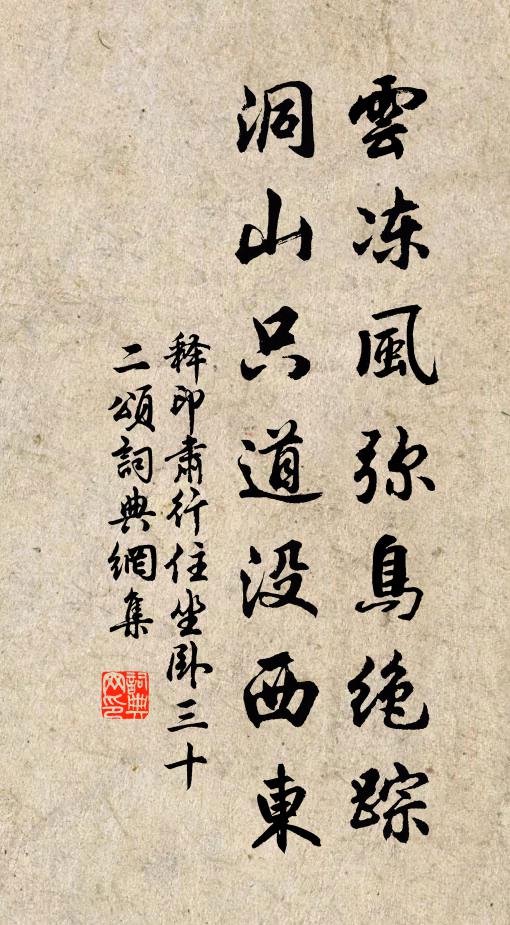 雲冻風弥鳥绝踪
洞山只道没西東
释印肅行住坐卧三十
二頌詞典網集
詞典網印